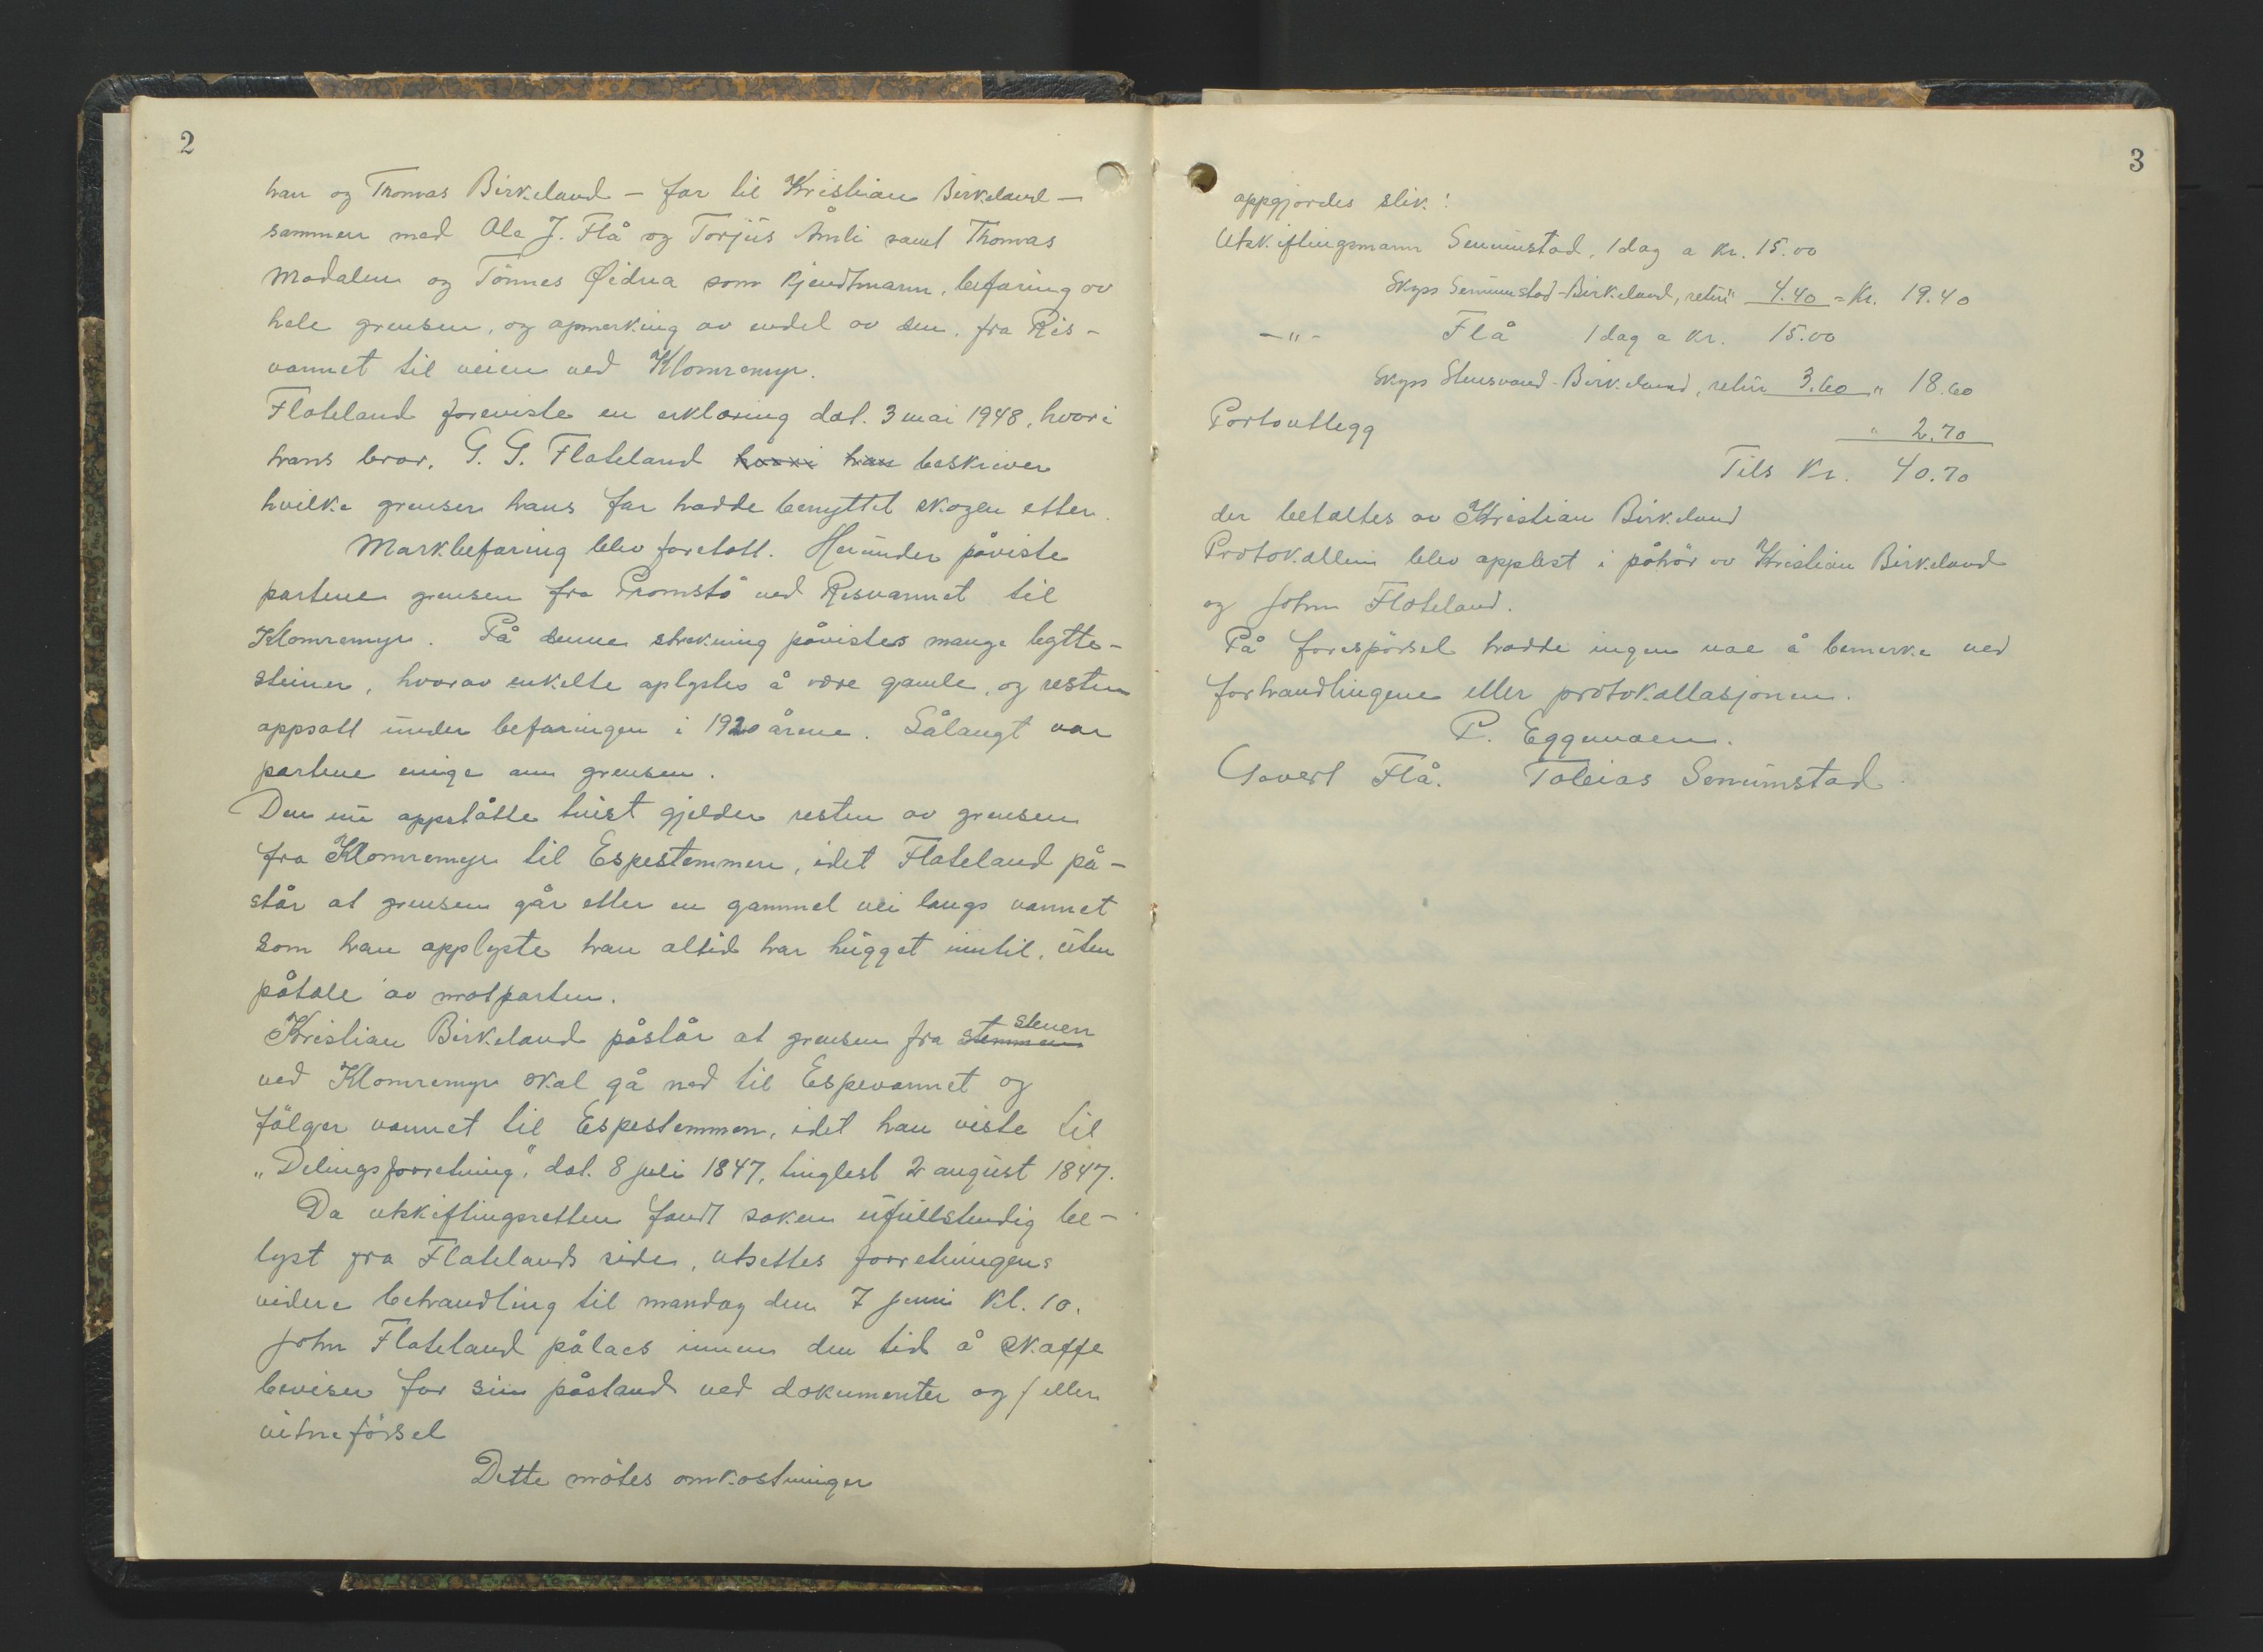 2
han og Thomas Birkeland – far til Kristian Birkeland –
sammen med Ole J. Flå og Torjus Åmli samt Thomas
Modalen og Tönnes Øidna som kjendtmann, befaring av
hele grensen, og opmerking av endel av den, fra Res-
vannet til veien ved Klomremyr.
Flateland foreviste en erklæring dat. 3 mai 1948, hvori
hans bror, G. G. Flateland hvori han beskriver
hvilke grenser hans far hadde benyttet skogen etter.
Markbefaring blev foretatt. Herunder påviste
partene grensen fra Promstö ved Resvannet til
Klomremyr. På denne strekning påvistes mange bytte-
steiner, hvorav enkelte oplystes å være gamle, og resten
oppsatt under befaringen i 1920 årene. Sålangt var
partene enige om grensen.
Den nu oppståtte tvist gjelder resten av grensen
fra Klomremyr til Espestemmen, idet Flateland på-
står at grensen går etter en gammel vei langs vannet
som han opplyste han altid har hugget inntil, uten
påtale av motparten.
Kristian Birkeland påstår at grensen fra stemmen stenen
ved Klomremyr skal gå ned til Espevannet og
fölger vannet til Espestemmen, idet han viste til
„Delingsforretning", dat. 8 juli 1847, tinglest 2 august 1847.
Da utskiftingsretten fandt saken ufullstendig be-
lyst fra Flatelands side, utsettes forretningens
videre behandling til mandag den 7 juni kl. 10.
John Flateland pålaes innen den tid å skaffe
beviser for sin påstand ved dokumenter og / eller
vitneförsel
Dette mötes omkostninger
3
oppgjordes slik:
Utskiftingsmann Senumstad, 1 dag a kr. 15.00
Skyss Senumstad-Birkeland, retur 4.40 = Kr. 19.40
–"– Flå 1 dag a kr. 15.00
Skyss Stensvand-Birkeland, retur 3.60 " 18.60
Portoutlegg " 2.70
Tils kr. 40.70
der betaltes av Kristian Birkeland
Protokollen blev opplest i påhör av Kristian Birkeland
og John Flateland.
På forespörsel hadde ingen noe å bemerke ved
forhandlingene eller protokollasjonen.
P. Eggemoen.
Govert Flå. Tobias Senumstad